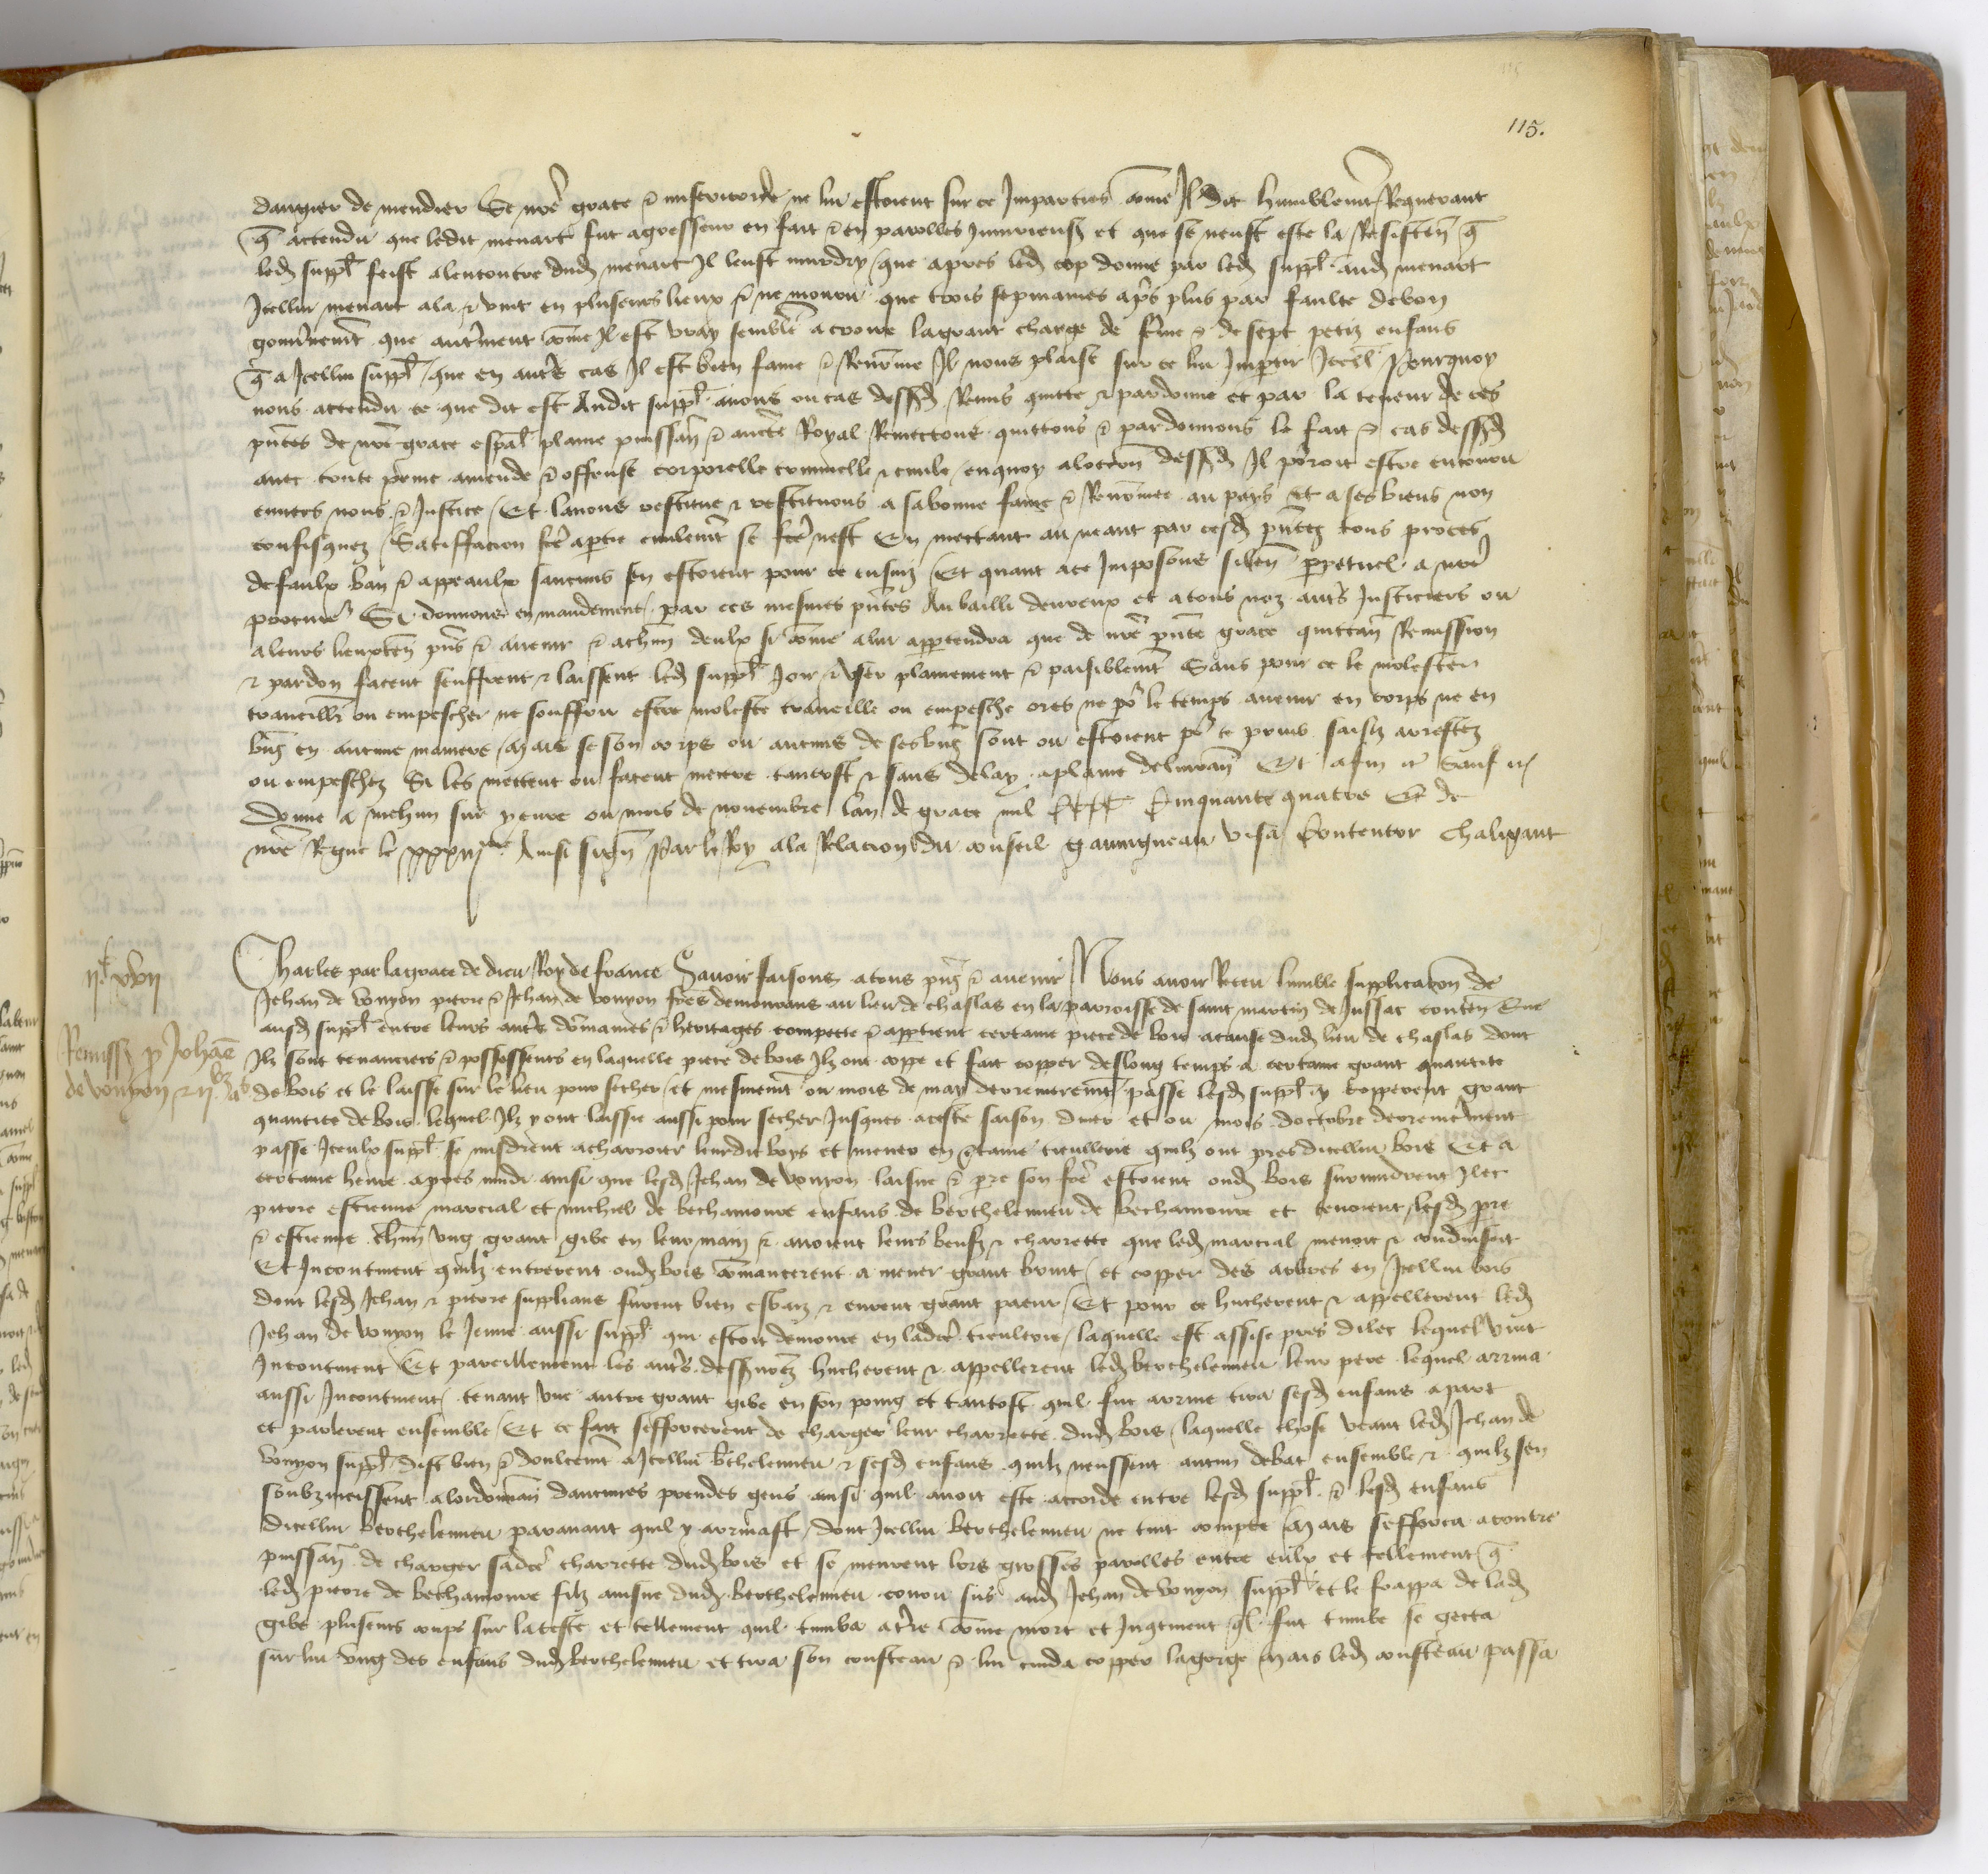 115.
dangier de mendier Se nre grace et misericorde ne lui estoient sur ce Imparties come Il dit humblemt Requerant
q attendu que ledit menart fut agresseur en fait et en parolles Iniurieuses et que se neust este la Resisten q
led suppl feist alencontre dud menart Il leust murdry que apres led cop donne par led suppl aud menart
Icellui menart ala et vint en pluseurs lieux et ne mouru que trois sepmaines aps plus par faulte de bon
gouvnemt que autrement come Il est vray semble a croire la grant charge de feme et de sept petiz enfans
q a Icellui suppl que en autrs cas Il est bien fame et Renome Il nous plaise sur ce lui Impartir Icell Pourquoy
nous attendu ce que dit est Audit suppl avons ou cas dessusd Remis quitte et pardonne et par la teneur de ces
pntes de nre grace espal plaine puissan et aucte Royal Remettons quittons et pardonnons le fait et cas dessusd
avec toute peine amende et offense corporelle criminelle et civile enquoy aloccon dessusd Il porroit estre encouru
envers nous et Justice Et lavons restitue et restituons a sa bonne fame et Renomee au pays et a ses biens non
confisquez Satisfacion fce a partie civilemt se fce nest En mettant au neant par cesd pntes tous proces
defaulx ban et appeaulx saucuns sen estoient pour ce ensuiz Et quant a ce Imposons silen perpetuel a nre
procureur Si donnons en mandement par ces mesmes pntes Au bailli devreux et a tous noz autrs Justiciers ou
a leurs lieuxten pns et avenir et a chun deulx si come a lui appartendra que de nre pnte grace quittan Remission
et pardon facent seuffrent et laissent led suppl Joir et user plainement et paisiblemt Sans pour ce le molester
traveillr ou empescher ne souffrir estre moleste traveille ou empesche ores ne por le temps avenir en corps ne en
biens en aucune maniere mais se son corps ou aucuns de ses biens sont ou estoient pr ce prins saisiz arrestez
ou empeschez Si les mettent ou facent mettre tantost et sans delay a plaine delivran Et afin etc Sauf etc
Donne a Mehun sur yevre ou mois de novembre lan de grace mil CCCC Cinquante quatre Et de
nre Regne le xxxiijme Ainsi sign Par le Roy a la Relacion du conseil gavigneau visa Contentor Chaligaut
IIc xvii
Remiss p Johane
de vouyon et II. als
Charles par la grace de dieu Roy de france Savoir faisons a tous pns et avenir Nous avoir Receu lumble supplicacon de
Jehan de vouyon pierre et Jehan de vouyon fres demourans au lieu de chaslas en la parroisse de saint martin de Jussac conten Que
ausd suppl entre leurs autrs domaines et heritages compette et apptient certaine piece de bois a cause dud lieu de chaslas dont
Ilz sont tenanciers et possesseurs en laquelle piece de bois Ilz ont coppe et fait copper de long temps a certaine grant quantite
de bois et le laisse sur le lieu pour secher et mesmemt ou mois de may derreniremt passe lesd suppl y copperent grant
quantite de bois lequel Ilz y ont laissie aussi pour secher Jusques a ceste saison dyver et ou mois doctobre derrenierement
passe Iceulx suppl se misdrent a charroier leurdit boys et mener en ctaine tieullerie quilz ont pres dicellui bois Et a
certaine heure apres midi ainsi que lesd Jehan de vouyon laisne et pre son fre estoient oud bois survindrent Ilec
pierre estienne marcial et michiel de bechamoure enfans de berthelemieu de bechamoure et tenoient lesd pre
et estienne chun ung grant gibe en leur main et avoient leurs beufz et charrette que led marcial menoit et conduisoit
Et Incontinent quilz entrerent oud bois comancerent a mener grant bruit et copper des arbres en Icellui bois
dont lesd Jehan et pierre supplians furent bien esbaiz et eurent grant paeur Et pour ce hucherent et appellerent led
Jehan de vouyon le Jeune aussi suppl qui estoit demoure en ladce tieulerie laquelle est assise pres dilec lequel vint
Incontinent Et pareillement les autrs dessusnomez hucherent et appellerent led berthelemieu leur pere lequel arriva
aussi Incontinent tenant une autre grant gibe en son poing et tantost quil fut arrive tira sesd enfans a part
et parlerent ensemble Et ce fait sefforcerent de charger leur charrette dud bois laquelle chose veant led Jehan de
vouyon suppl dist bien et doulcemt a Icellui bthelemieu et sesd enfans quilz neussent aucun debat ensemble et quilz sen
soubzmeissent a lordonnan daucunes preudes gens ainsi quil avoit este accorde entre lesd suppl et lesd enfans
dicellui berthelemieu paravant quil y arrivast dont Icellui berthelemieu ne tint compte mais sefforca a toutte
puissan de charger sadce charrette dud bois et se meurent lors grosses parolles entre eulx et tellement q
led pierre de bechamoure filz aisne dud berthelemieu courut sus aud Jehan de vouyon suppl et le frappa de lad
gibe plusieurs coups sur la teste et tellement quil tumba a tre come mort et Incontinent ql fut tumbe se gecta
sur lui ung des enfans dud berthelemieu et tira son cousteau et lui cuida copper la gorge mais led cousteau passa